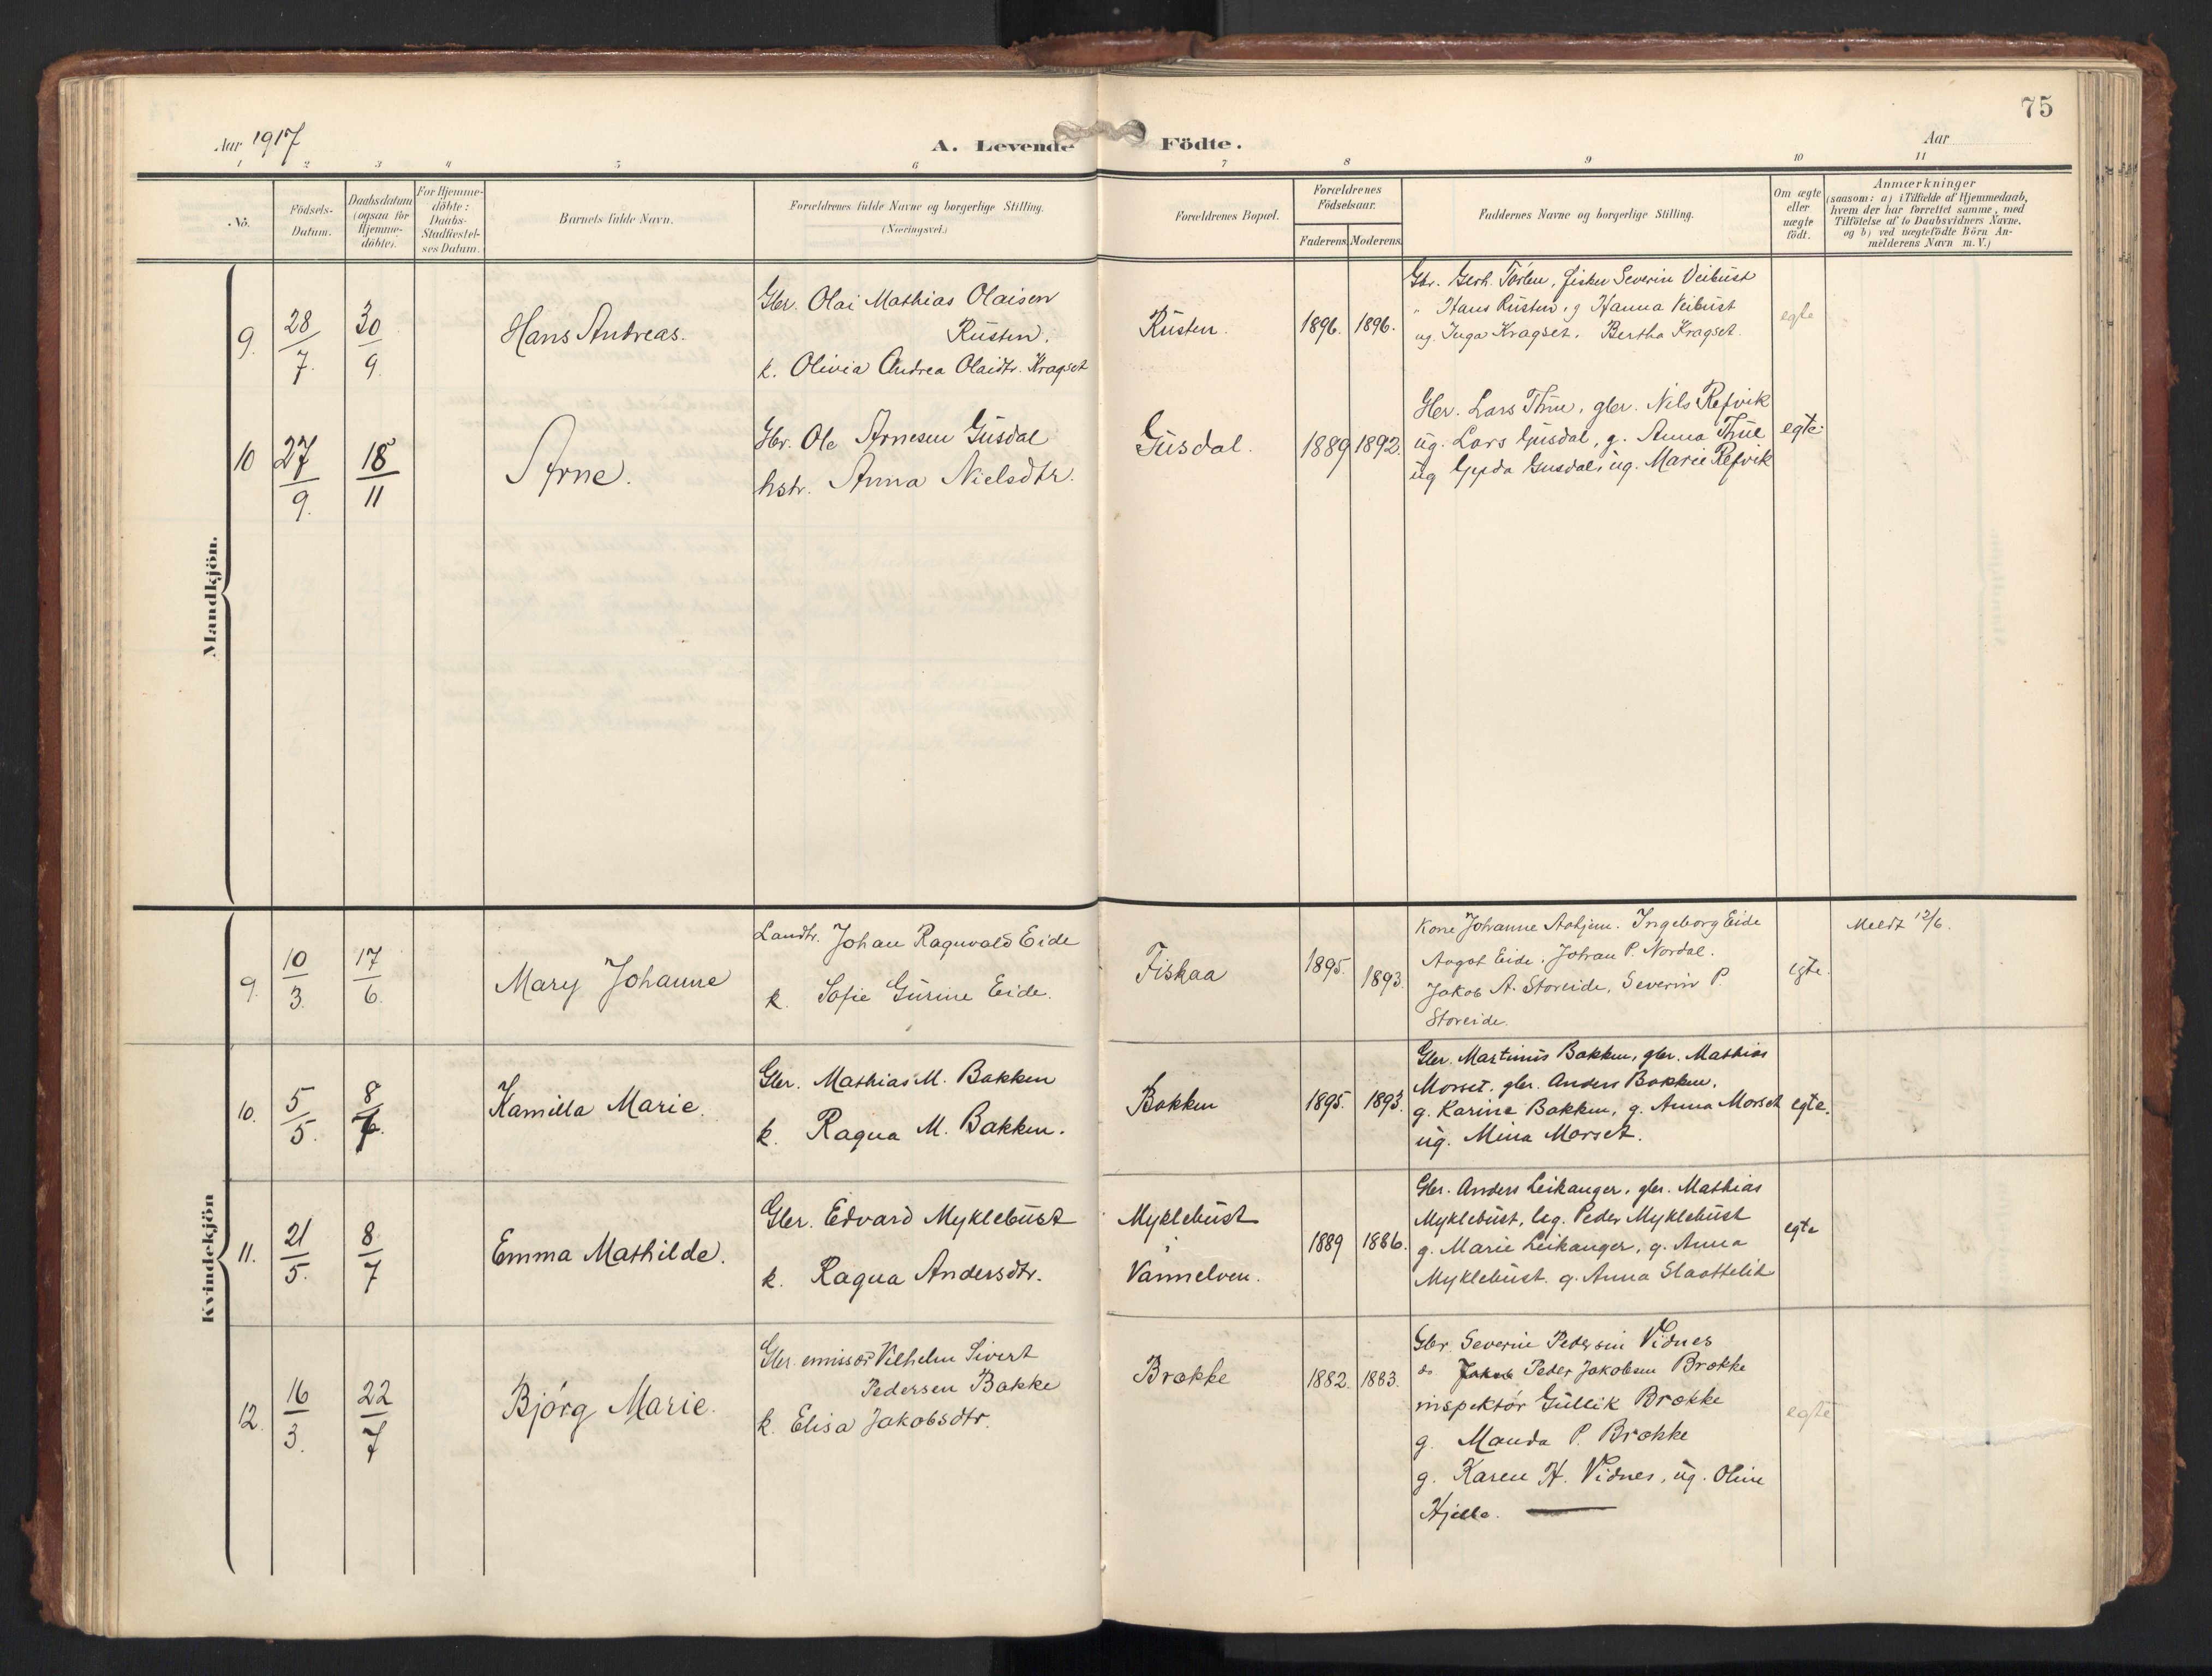 75
Aar 1917
A. Levende Födte.
Aar
1 2 3 4 5 6 7 8 9 10 11
No.
Födsels-Datum.
Daabsdatum (ogsaa for Hjemme-döbte).
For Hjemme-döbte: Daabs-Stadfæstel-ses Datum.
Barnets fulde Navn.
Forældrenes fulde Navne og borgerlige Stilling. (Næringsvei.)
Forældrenes Bopæl.
Forældrenes Födselsaar.
Faderens Moderens
Faddernes Navne og borgerlige Stilling.
Om ægte eller uægte födt.
Anmærkninger (saasom: a) i Tilfælde af Hjemmedaab, hvem der har forrettet samme, med Tilföielse af to Daabsvidners Navne. og b) ved uægtefödte Börn Anmelderens Navn m.V.)
Mandkjön.
9. 28/7. 30/9.
Hans Andreas.
Gbr. Olai Mathias Olaisen
Rusten.
k. Olivia Andrea Olaidtr. Kragset
Rusten.
1896. 1896.
Fisker Severin Veibust
" Hans Rusten, g Hanna Veibust
ug. Inga Kragset. Bertha Kragset.
egte
10 27/9. 18/11
Arne.
Gbr. Ole Arnesen Gusdal
hstr. Anna Nielsdtr.
Gusdal.
1889 1892.
Gbr. Lars Thue, gbr. Nils Refvik
ug. Lars Gusdal, g. Anna Thue
ug Gusdal, ug. Marie Refvik
egte.
Kvindekjön
9. 10/3. 17/6.
Mary Johanne
Landh. Johan Ragnvald Eide
k. Sofie Gurine Eide.
Fiskaa
1895. 1893.
Kone Johanne Aahjem. Ingeborg Eide
Aagot Eide. Johan P. Nordal.
Jakob A. Storeide, Severin P.
Storeide.
egte.
Meldt 12/6.
10. 5/5. 8/7.
Kamilla Marie.
Gbr. Mathias M. Bakken
k. Ragna M. Bakken.
Bakken
1895. 1893.
Gbr. Martinus Bakken, gbr. Mathias
Morset. gbr. Anders Bakken.
g. Karine Bakken, g. Anna Morset
ug. Mina Morset.
egte.
11. 21/5. 8/7
Emma Mathilde.
Gbr. Edvard Myklebust
k. Ragna Andersdtr.
Myklebust
Vannelven.
1889 1886.
Gbr. Anders Leikanger, gbr. Mathias
Myklebust, leg. Peder Myklebust
g. Marie Leikanger, g. Anna
Myklebust. g. Anna Slaattelid
egte
12. 16/3. 22/7
Bjørg Marie.
Gbr. emissær Vilhelm Sivert
Pedersen Bakke
k. Elisa Jakobsdtr.
Brække
1882. 1883.
Gbr. Severin Pedersen Vidnes
do Peder Jakobsen Brække
inspektør Gullik Brække
g. Manda P. Brække
g. Karen H. Vidnes, ug. Oline
Hjelle.
egte